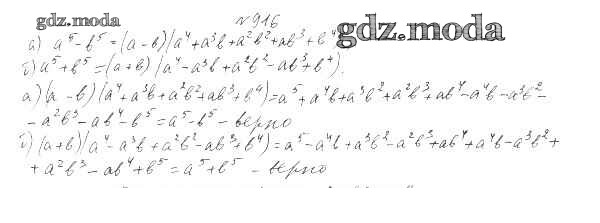 gdz.moda
№ 916
gdz.moda
а) a⁵-b⁵=(a-b)(a⁴+a³b+a²b²+ab³+b⁴)
б) a⁵+b⁵=(a+b)(a⁴-a³b+a²b²-ab³+b⁴).
а) (a-b)(a⁴+a³b+a²b²+ab³+b⁴)=a⁵+a⁴b+a³b²+a²b³+ab⁴-a⁴b-a³b²-
-a²b³-ab⁴-b⁵=a⁵-b⁵-верно
б) (a+b)(a⁴-a³b+a²b²-ab³+b⁴)=a⁵-a⁴b+a³b²-a²b³+ab⁴+a⁴b-a³b²+
+a²b³-ab⁴+b⁵=a⁵+b⁵-верно